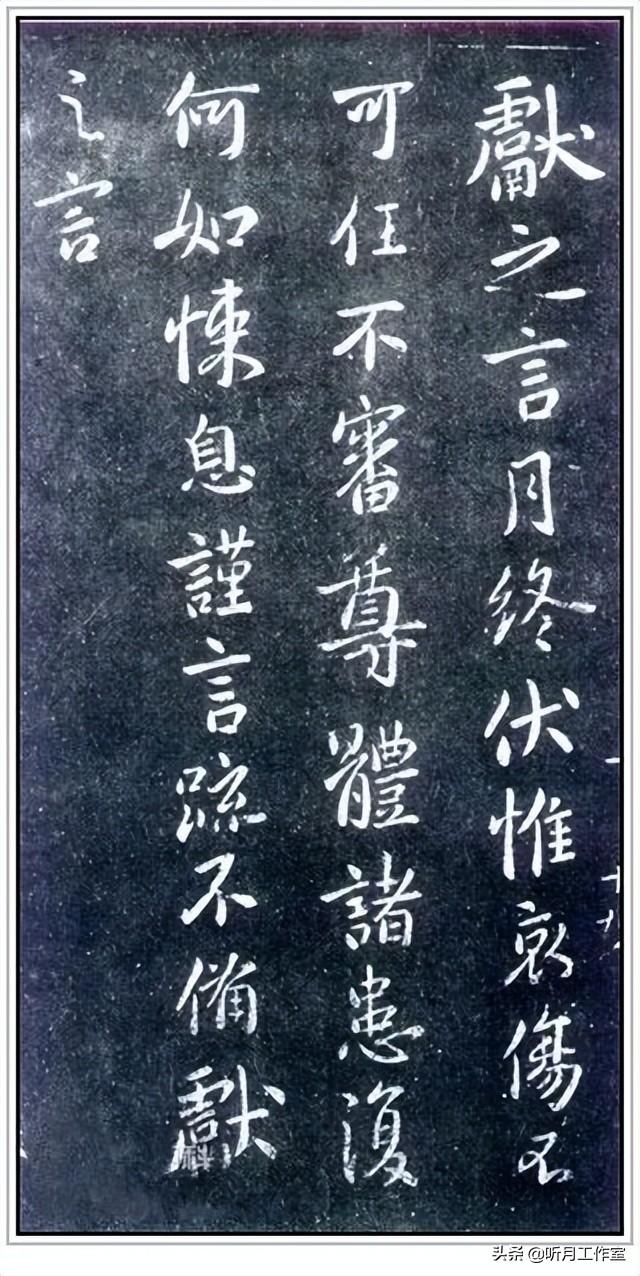 獻之言月終伏惟哀傷不
可任不審尊體諸患復
何如悚息謹言疏不備獻
之言
十九
头条 @听月工作室